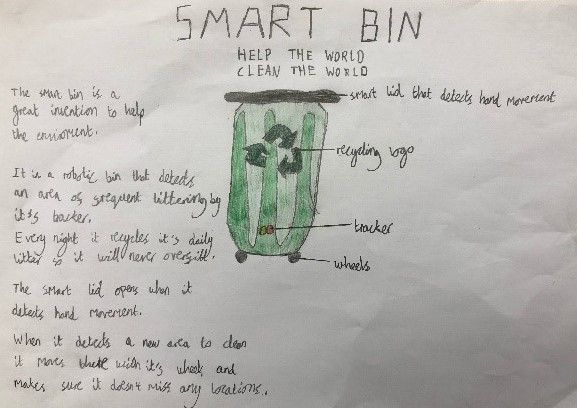 SMART BIN
HELP THE WORLD
CLEAN THE WORLD
The smart bin is a
great invention to help
the enviroment.
It is a robotic bin that detects
an area of frequent littering by
it's tracker.
Every night it recycles it's daily
litter so it will never overfill.
The smart lid opens when it
detects hand movement.
When it detects a new area to clean
it moves there with it's wheels and
makes sure it doesn't miss any locations.
smart lid that detects hand movement
recycling logo
tracker
wheels